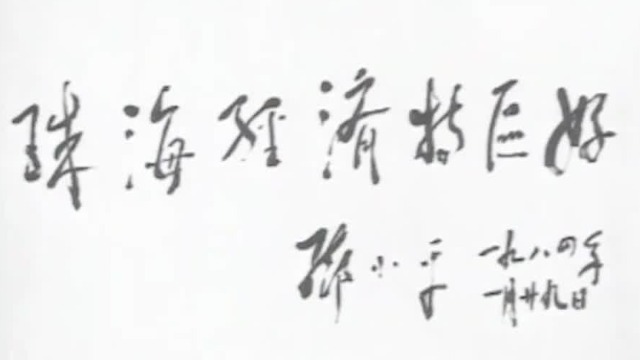 珠海經濟特区好
邓小平 一九八四年
一月廿九日